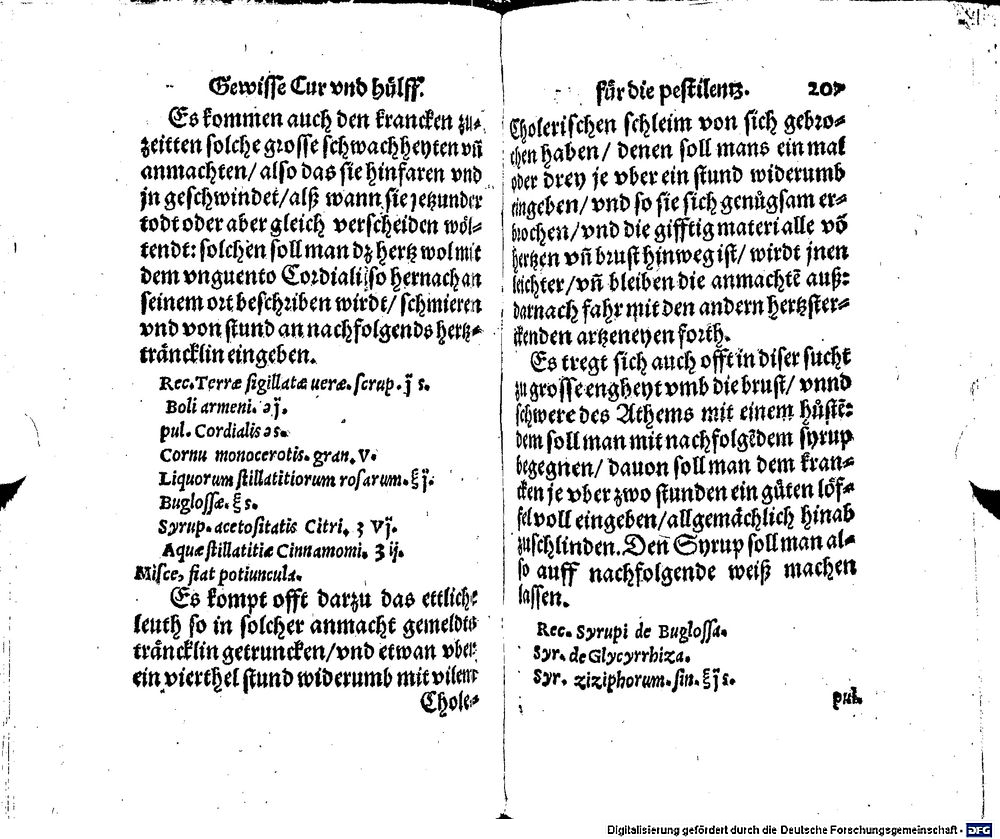 Gewisse Cur vnd hülff.
Es kommen auch den krancken zu-
zeitten solche grosse schwachheyten vñ
anmachten/ also das sie hinfaren vnd
jn geschwindet/ alß wann sie jetzunder
todt oder aber gleich verscheiden wöl-
tendt: solchen soll man dz hertz wol mit
dem vnguento Cordiali/ so hernach an
seinem ort beschriben wirdt/ schmieren
vnd von stund an nachfolgends hertz-
träncklin eingeben.
Rec. Terræ sigillatæ ueræ. scrup. j̃ s.
Boli armeni. ℈j̃.
pul. Cordialis ℈s.
Cornu monocerotis. gran. V.
Liquorum stillatitiorum rosarum. ℥j̃.
Buglossæ. ℥ s.
Syrup. acetositatis Citri. ʒ Vj̃.
Aquæ stillatitiæ Cinnamomi. ʒ ij.
Misce, fiat potiuncula.
Es kompt offt darzu das ettliche
leuth so in solcher anmacht gemeldts
träncklin getruncken/ vnd etwan vber
ein vierthel stund widerumb mit vilem
Chole-
für die pestilentz. 207
Cholerischen schleim von sich gebro-
chen haben/ denen soll mans ein mal
oder drey je vber ein stund widerumb
eingeben/ vnd so sie sich genůgsam er-
brochen/ vnd die gifftig materi alle võ
hertzen vñ brust hinweg ist/ wirdt jnen
leichter/ vñ bleiben die anmachtẽ auß:
darnach fahr mit den andern hertzster-
ckenden artzeneyen forth.
Es tregt sich auch offt in diser sucht
zu grosse engheyt vmb die brust/ vnnd
schwere des Athems mit einem hůstẽ:
dem soll man mit nachfolgẽdem syrup
begegnen/ dauon soll man dem kran-
cken je vber zwo stunden ein gůten löf-
fel voll eingeben/ allgemächlich hinab
zuschlinden. Den Syrup soll man al-
so auff nachfolgende weiß machen
lassen.
Rec. Syrupi de Buglossa.
Syr. de Glycyrrhiza.
Syr. ziziphorum. sin. ℥j̃ s.
pul.
Digitalisierung gefördert durch die Deutsche Forschungsgemeinschaft - DFG